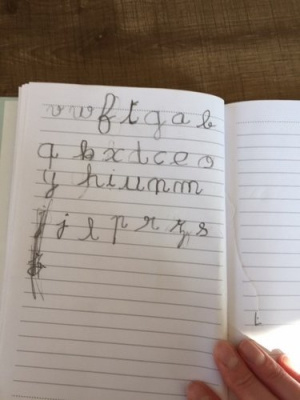 v w f t g a b
q k x d c e o
y h i u n m
j l p r z s
t